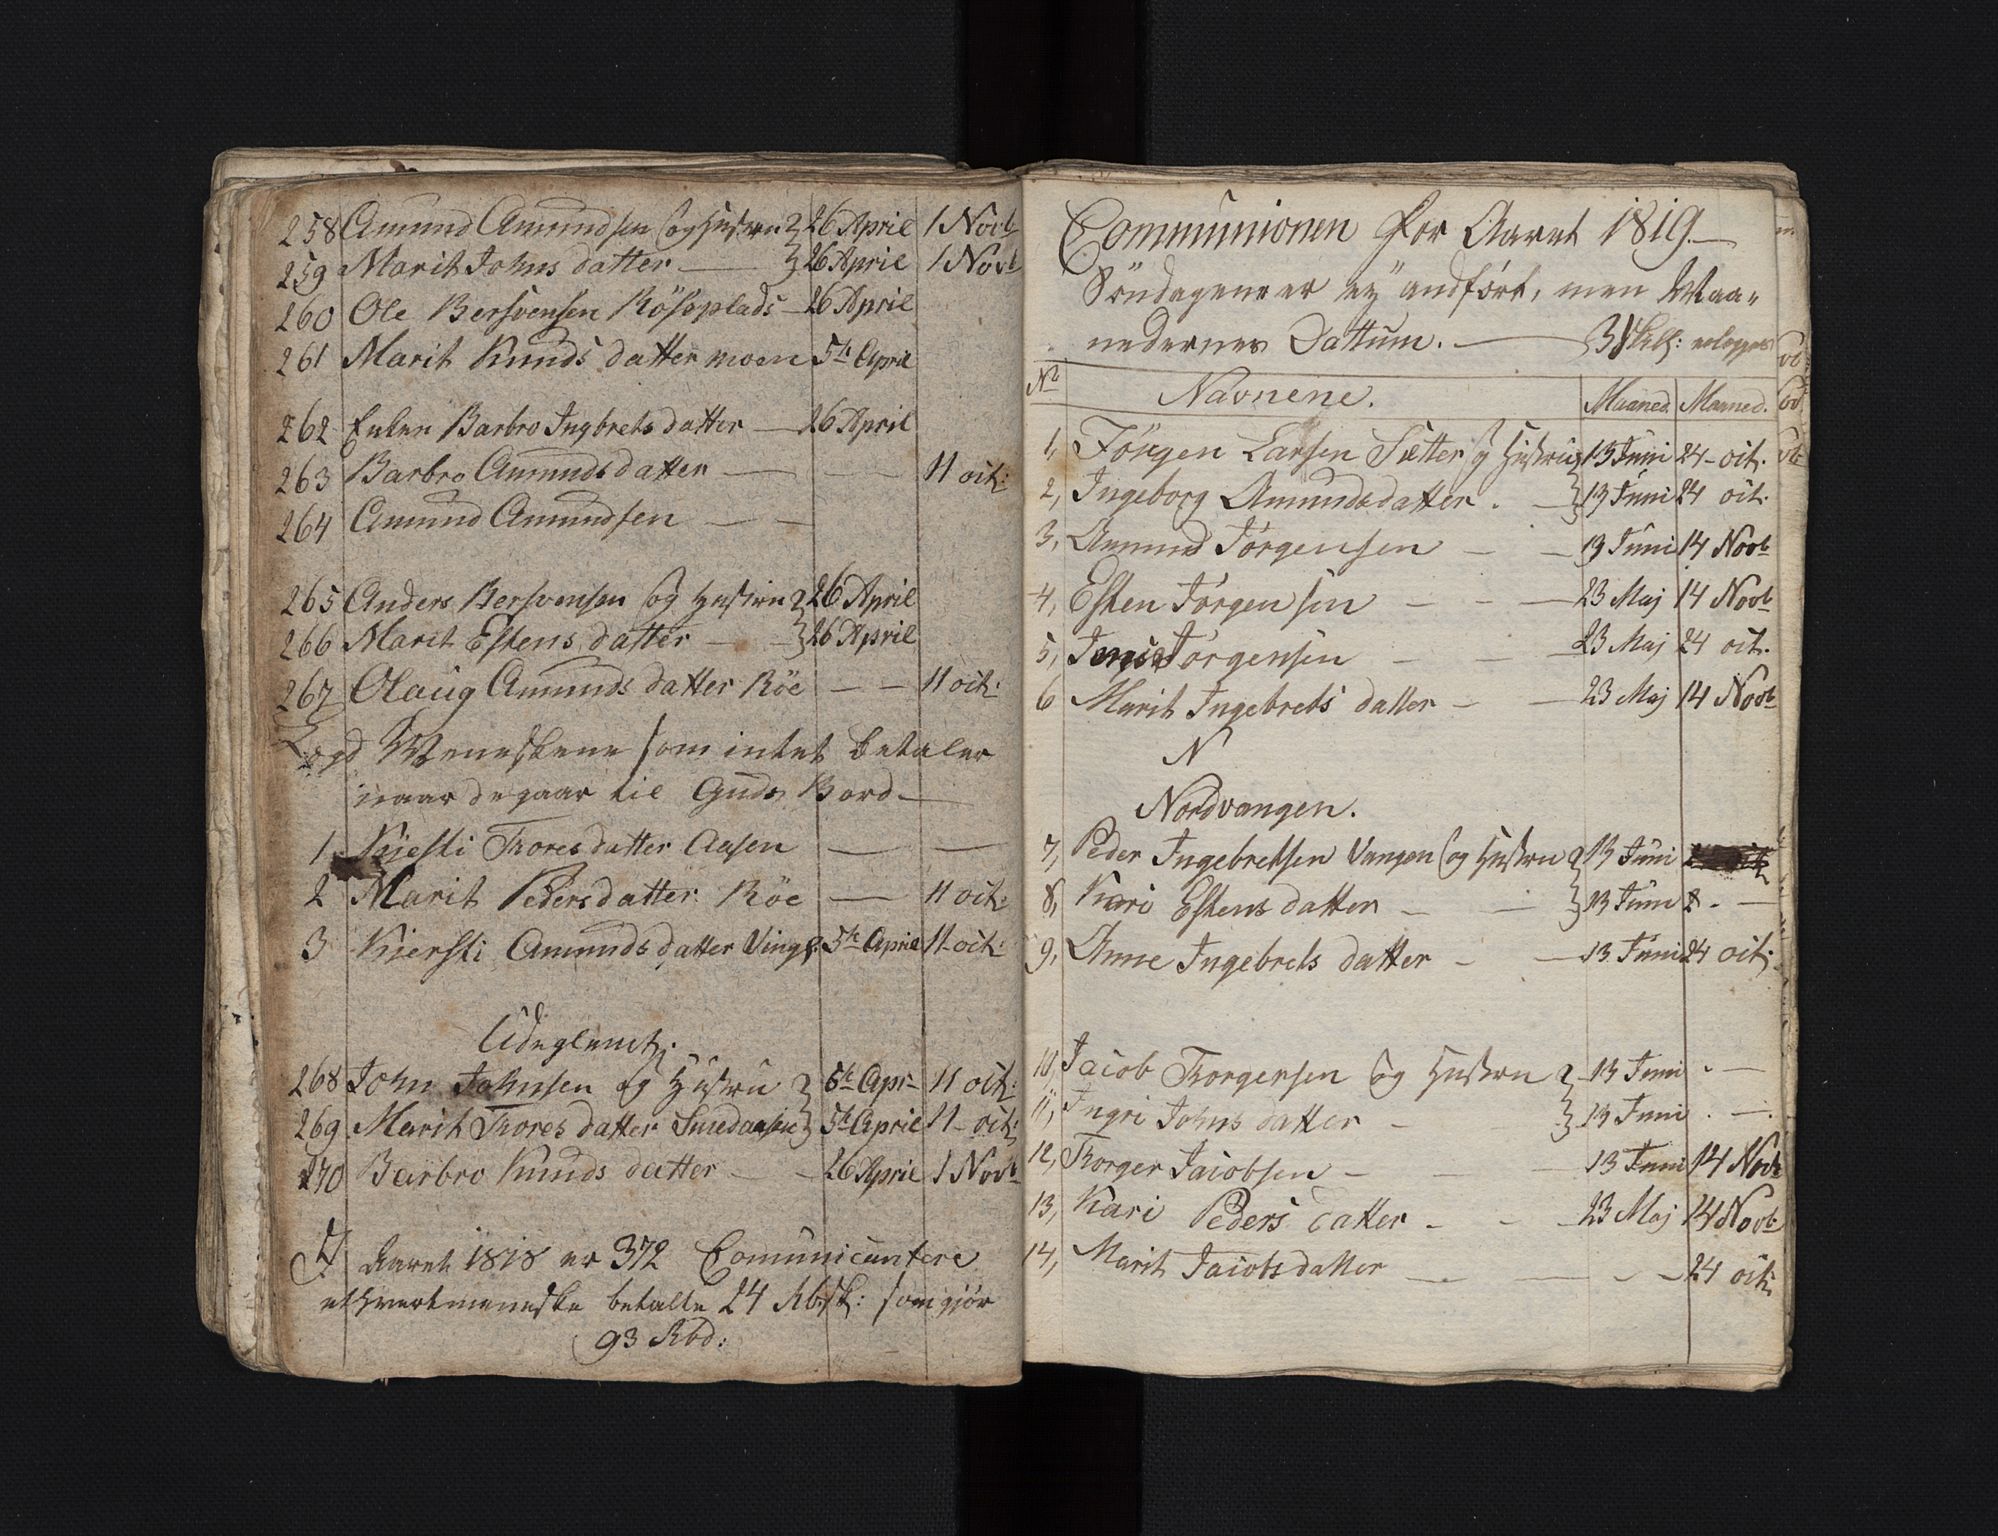 258 Amund Amundsen og Hustru 26 April 1 Novb
259 Marit Johns datter — 26 April 1 Novb
260 Ole Bersvensen Röseplads — 26 April
261 Marit Knuds datter moen 5te April
262 Enken Barbro Ingbrets datter — 26 April
263 Barbro Amunds datter — — 11 oct:
264 Amund Amundsen — —
265 Anders Bersvensen og Hustru 26 April
266 Marit Estens datter — — 26 April
267 Olaug Amunds datter Röe — — 11 oct:
Lægd Meneskene som intet betaler
naar de gaar til Guds Bord —
1 Kiesti Tores datter Aasen — —
2 Marit Peders datter Röe — 11 oct:
3 Kiersti Amunds datter Vingl: 5te April 11 oct:
Udeglemt.
268 John Johnsen og Hustru 5te Apr 11 oct:
269 Marit Tores datter 5te April 11 oct:
270 Barbro Knuds datter — — 26 April 1 Novb
I Aaret 1818 er 372 Comunicantere
ethvert meneske betalte 24 Rbsk: som gjör
93 Rbd:
Communionen for Aaret 1819 —
Söndagene er ey andfört, men Maa=
nedernes Dattum. —
No Navnene. Maaned. Maaned.
1, Jörgen Larsen Sætter og Hustru 13 Juni 24 oct.
2, Ingeborg Amunds datter. — 13 Juni 24 oct.
3, Amund Jörgensen — — 13 Juni 14 Novb
4, Esten Jörgensen — — — 23 Maj 14 Novb
5, Jörgensen — — — 23 Maj 24 oct.
6 Marit Ingebrets datter — — 23 Maj 14 Novb
N
Nordvangen.
7, Peder Ingebretsen Vangen og Hustru 13 Juni
8, Kari Estens datter — — 13 Juni
9, Anne Ingebrets datter — — 13 Juni 24 oct:
10, Jacob Torgersen og Hustru 13 Juni . —
11, Ingri Johns datter — 13 Juni . —.
12, Torger Jacobsen — — 13 Juni 14 Novb
13, Kari Peders datter — — — 23 Maj 14 Novb
14, Marit Jacobs datter — — — — 24 oct: